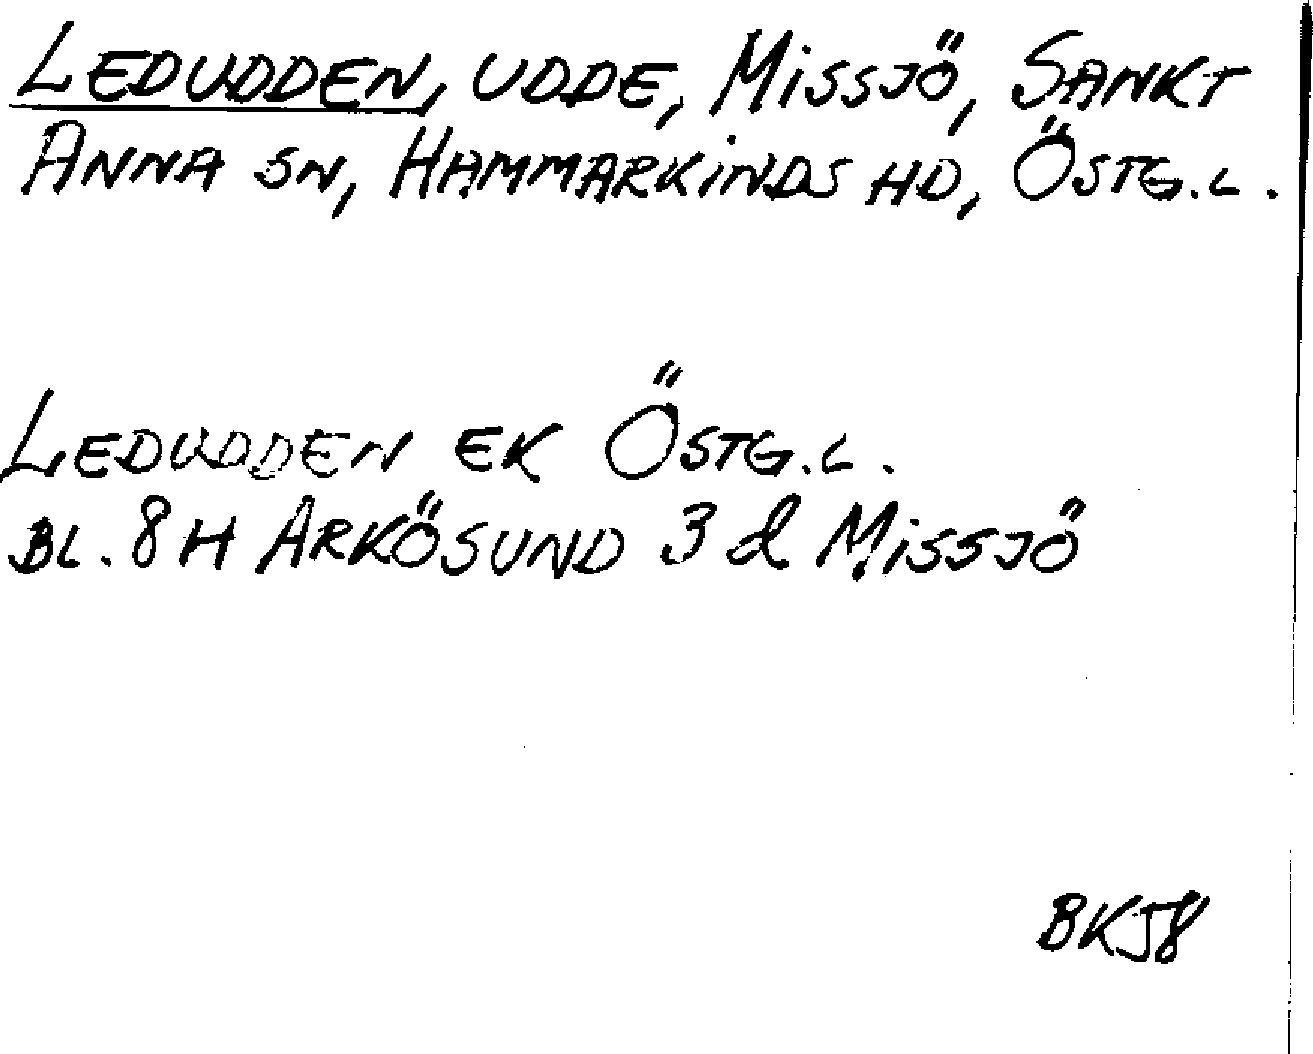 LEDUDDEN, UDDE, MISSJÖ, SANKT
ANNA SN, HAMMARKINDS HD, ÖSTG.L.
LEDUDDEN EK ÖSTG.L.
BL. 8H ARKÖSUND 3 d MISSJÖ
BKJ8